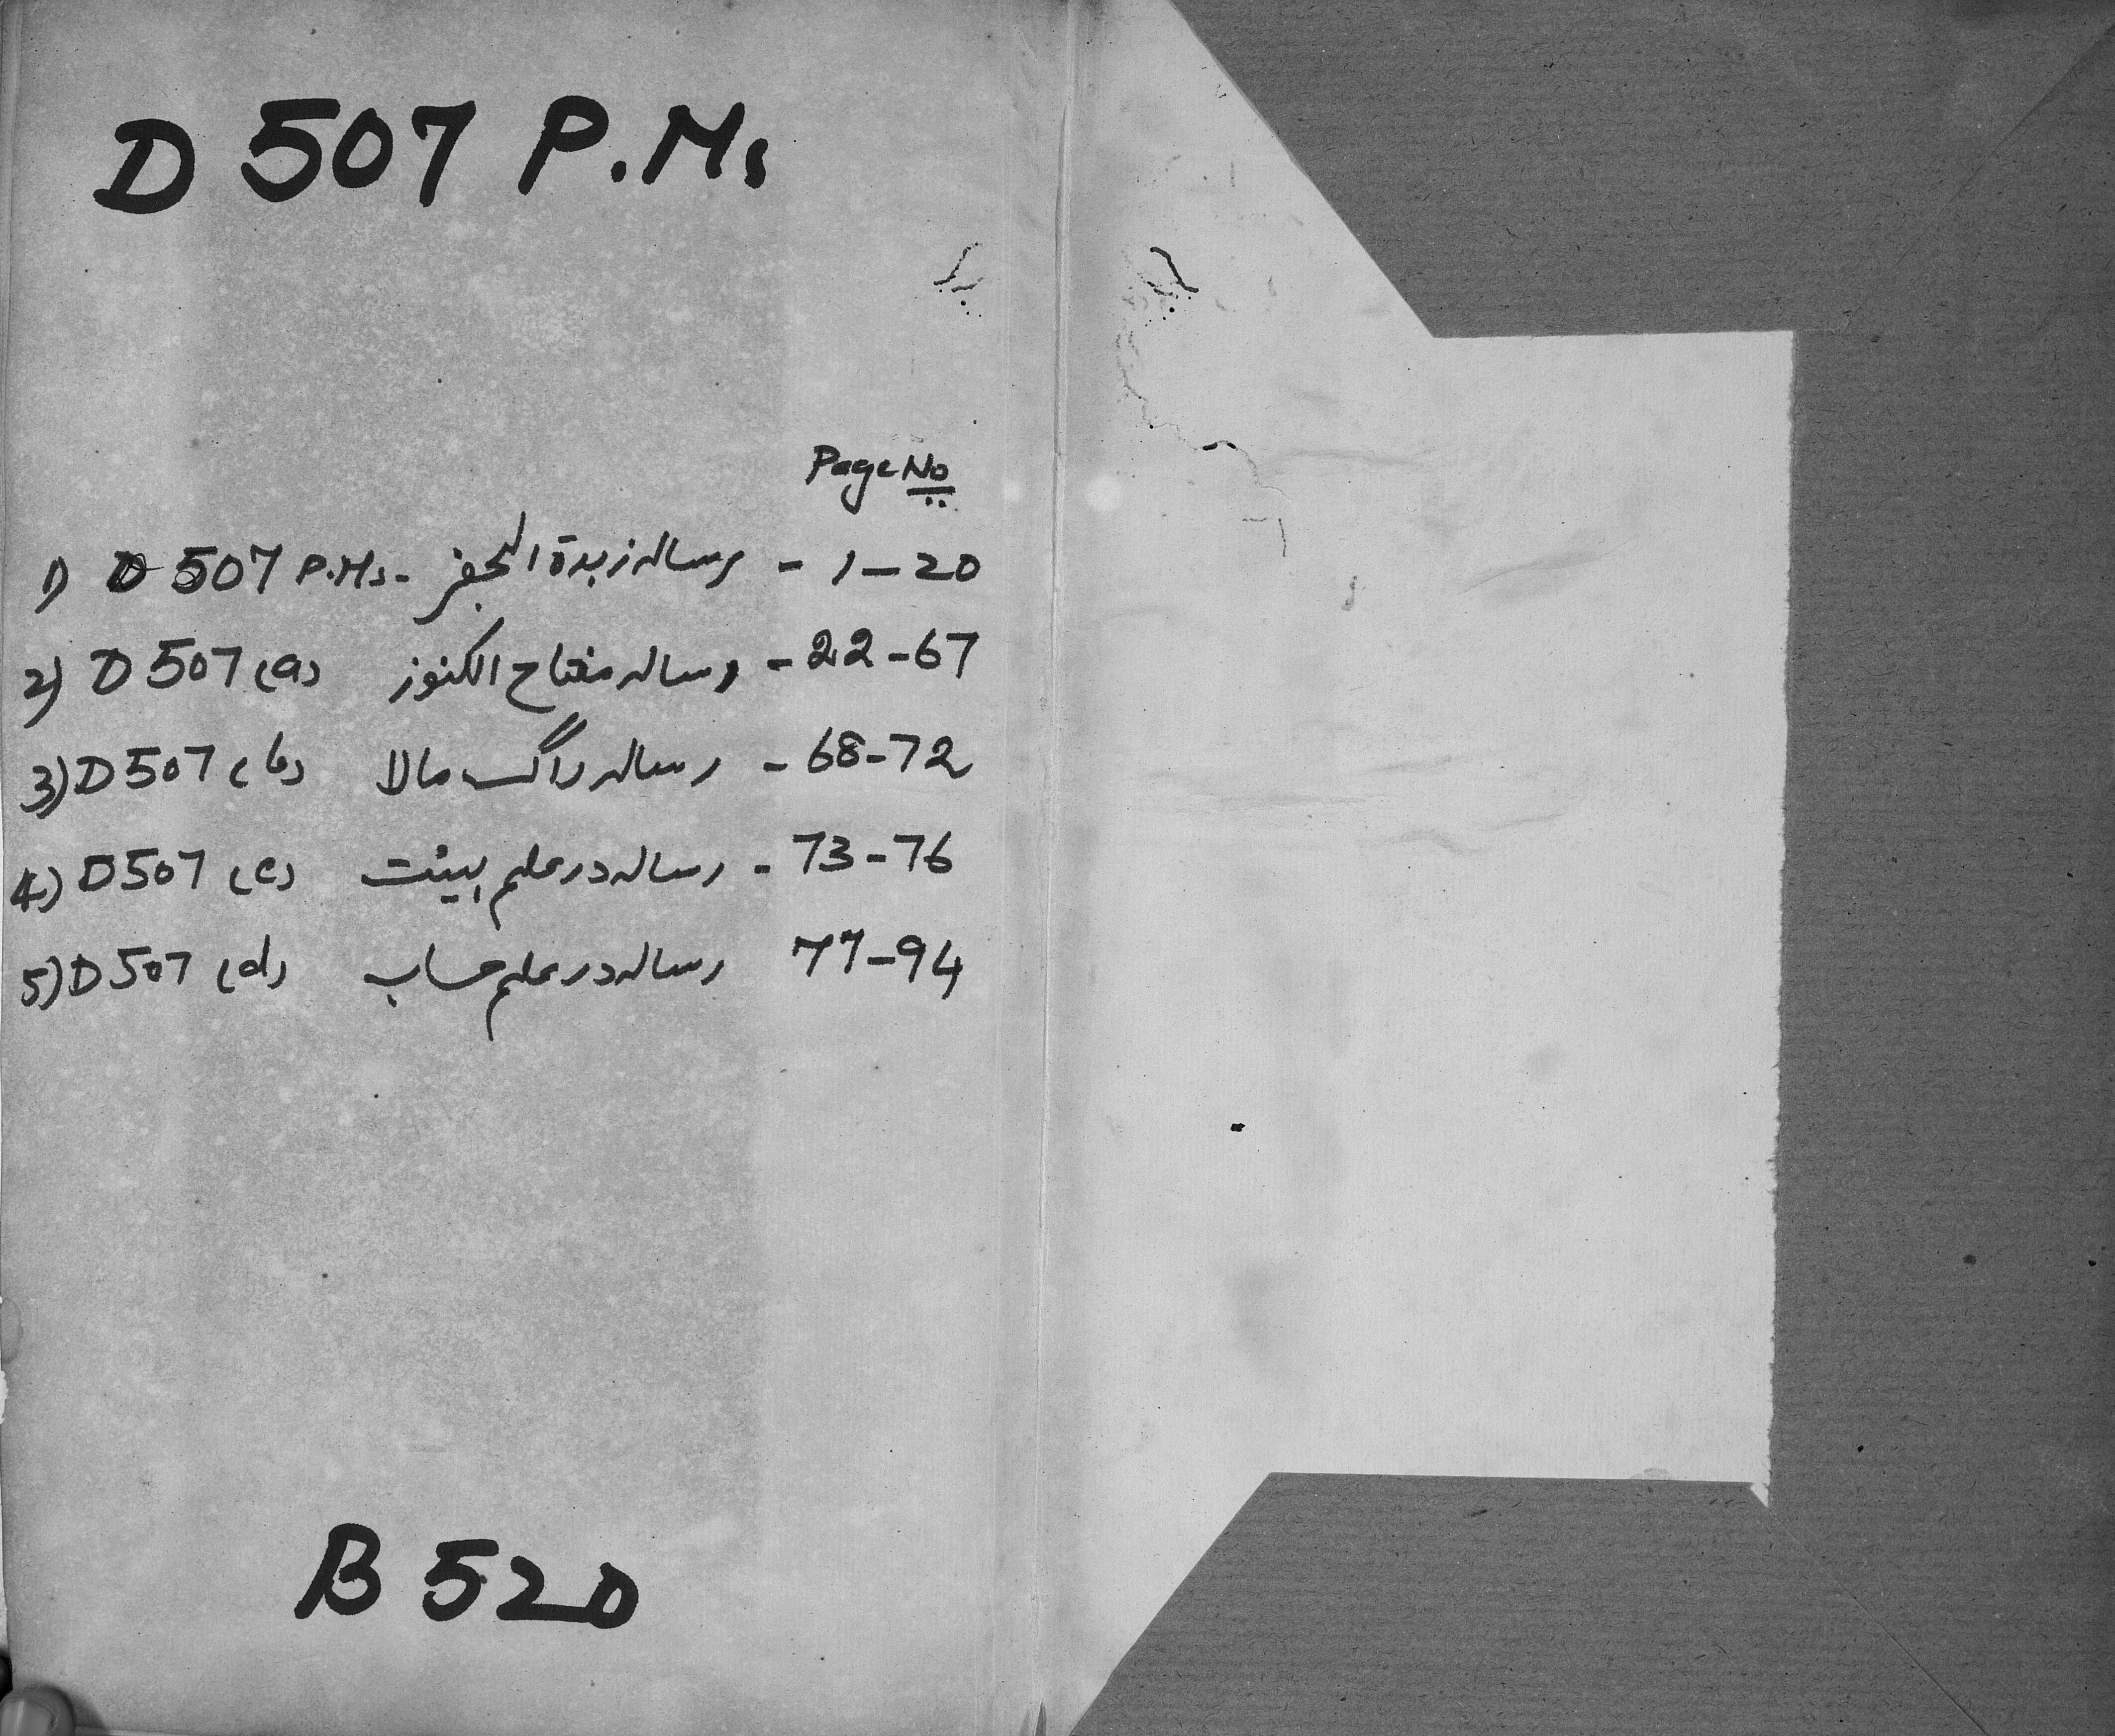 D 507 P.M.
Page No
1) D 507 P.Ms - رسالہ زبدۃ الجفر - 1-20
2) D 507 (a) رسالہ مفتاح الکنوز - 22-67
3) D 507 (b) رسالہ راگ مالا - 68-72
4) D 507 (c) رسالہ در علم ہیئت - 73-76
5) D 507 (d) رسالہ در علم حساب 77-94
B 520